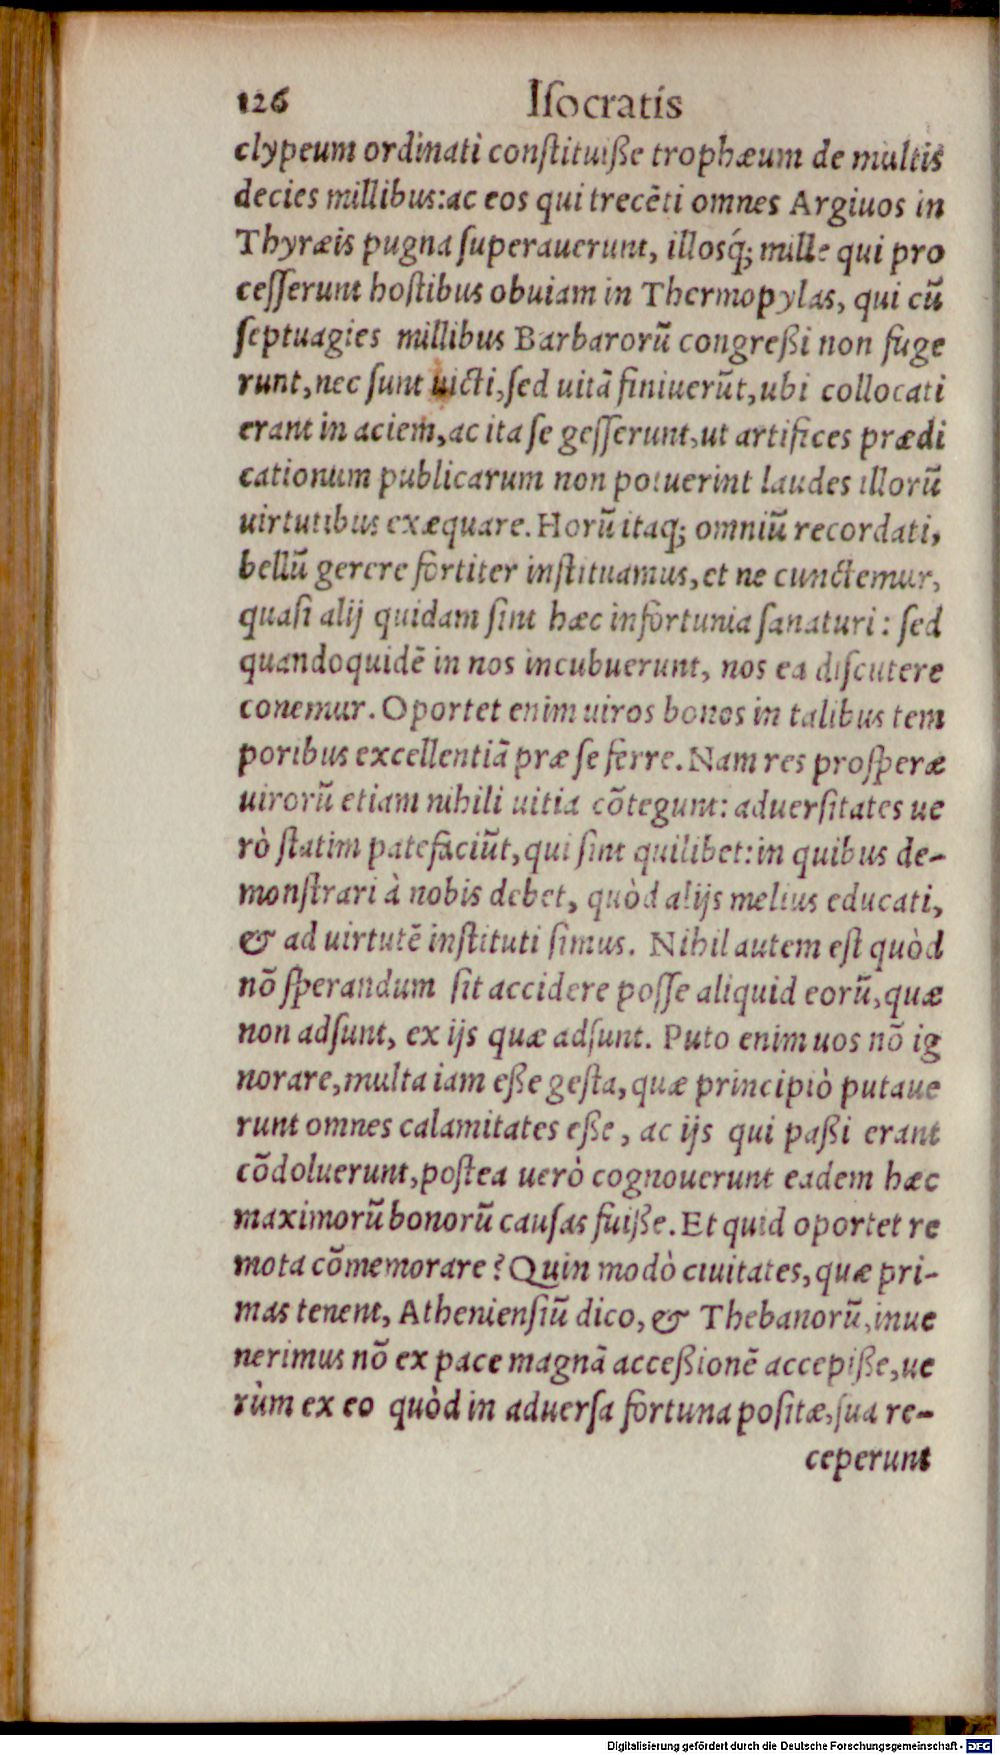 126 Iſocratis
clypeum ordinati conſtituiße trophæum de multis
decies millibus:ac eos qui trecēti omnes Argiuos in
Thyræis pugna ſuperauerunt, illosq́; mille qui pro
ceſſerunt hoſtibus obuiam in Thermopylas, qui cū
ſeptuagies millibus Barbarorū congreßi non fuge
runt,nec ſunt uicti,ſed uitā finiuerūt,ubi collocati
erant in aciem,ac ita ſe geſſerunt,ut artifices prædi
cationum publicarum non potuerint laudes illorū
uirtutibus exæquare. Horū itaq; omniū recordati,
bellū gerere fortiter inſtituamus,et ne cunctemur,
quaſi alij quidam ſint hæc infortunia ſanaturi: ſed
quandoquidē in nos incubuerunt, nos ea diſcutere
conemur. Oportet enim uiros bonos in talibus tem
poribus excellentiā præ ſe ferre. Nam res proſperæ
uirorū etiam nihili uitia cōtegunt: aduerſitates ue
rò ſtatim patefaciūt,qui ſint quilibet:in quibus de-
monſtrari à nobis debet, quòd alijs melius educati,
& ad uirtutē inſtituti ſimus. Nihil autem eſt quòd
nō ſperandum ſit accidere poſſe aliquid eorū,quæ
non adſunt, ex ijs quæ adſunt. Puto enim uos nō ig
norare,multa iam eße geſta,quæ principiò putaue
runt omnes calamitates eße, ac ijs qui paßi erant
cōdoluerunt,poſtea uerò cognouerunt eadem hæc
maximorū bonorū cauſas fuiße. Et quid oportet re
mota cōmemorare? Quin modò ciuitates,quæ pri-
mas tenent, Athenienſiū dico,& Thebanorū,inue
nerimus nō ex pace magnā acceßionē accepiße,ue
rùm ex eo quòd in aduerſa fortuna poſitæ,ſua re-
ceperunt
Digitalisierung gefördert durch die Deutsche Forschungsgemeinschaft - DFG